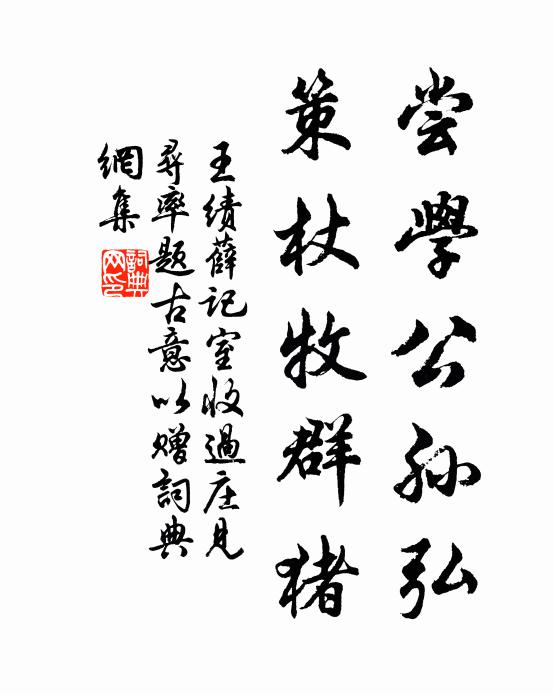 尝學公孙弘
策杖牧群猪
王绩薛記室收過庄見
尋率题古意以赠詞典
網集
詞典網印